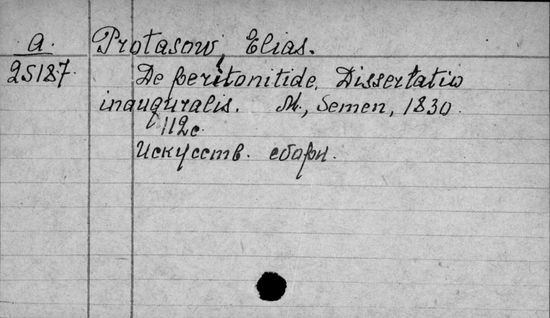 a. Protasow, Elias.
25187. De peritonitide. Dissertatio
inauguralis. M., Semen, 1830.
112c.
Искусств. сборн.